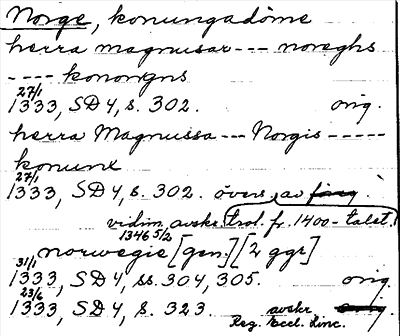 Norge, konungadöme
herra magnusar --- noreghs
---- konongns
27/1
1333, SD 4, s. 302. orig.
herra Magnussa --- Norgis -----
konunx
27/1
1333, SD 4, s. 302. övers. av
vidim. avskr. trol. fr. 1400-talet.
1346 5/2
norwegie [gen.] [2 ggr]
31/1
1333, SD 4, ss. 304, 305. orig.
23/6
1333, SD 4, s. 323 avskr
Reg. Eccl. Linc.